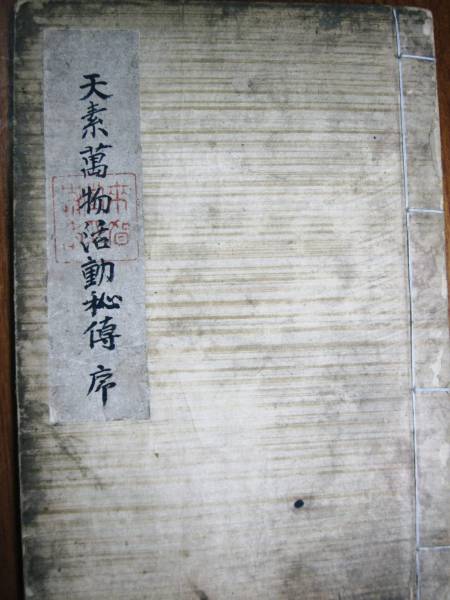 天素萬物活動秘傳 序